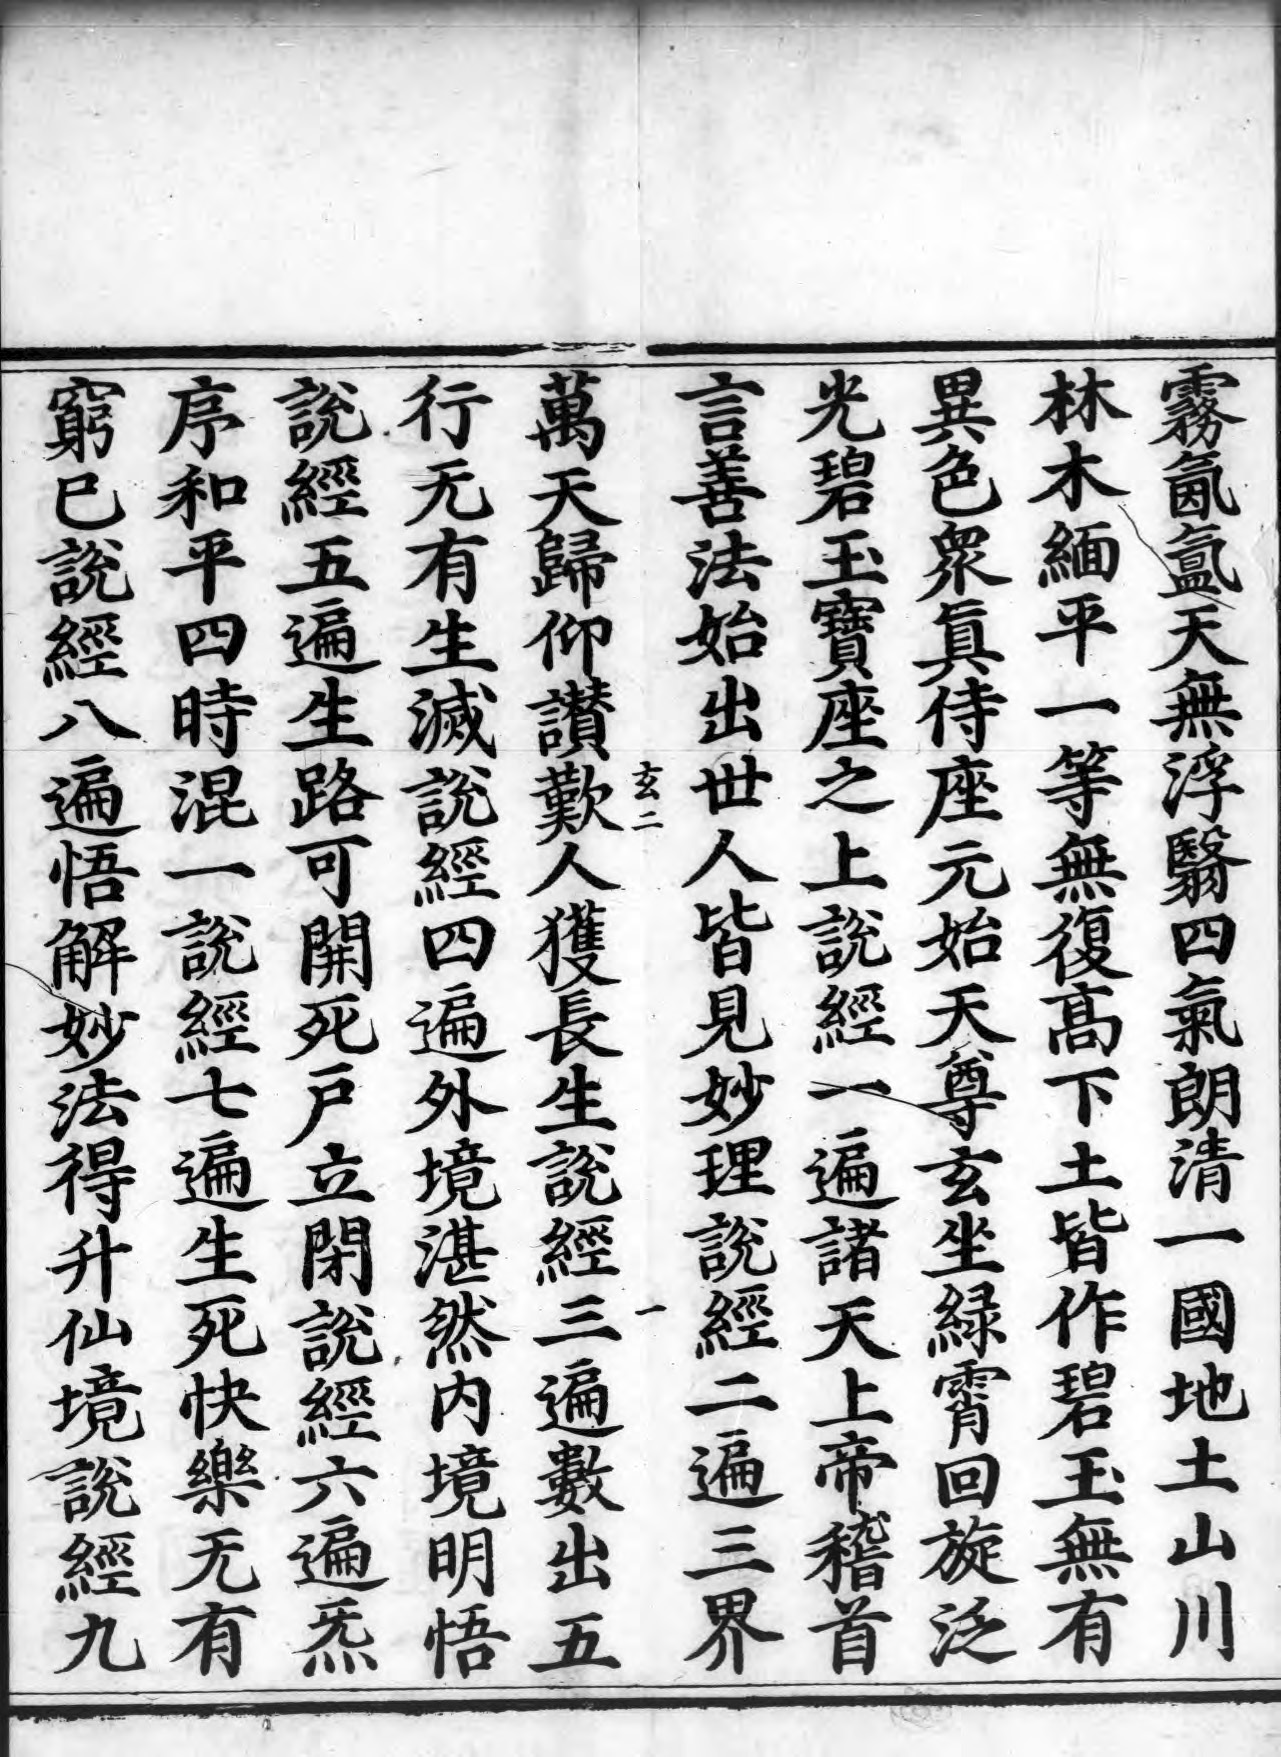 霧氤氳天無浮翳四氣朗清一國地土山川
林木緬平一等無復髙下土皆作碧玉無有
異色衆真侍座元始天尊玄坐緑霄回旋泛
光碧玉寶座之上說經一遍諸天上帝稽首
言善法始出世人皆見妙理說經二遍三界
玄二
一
萬天歸仰讃歎人獲長生說經三遍數出五
行无有生滅說經四遍外境湛然内境明悟
說經五遍生路可開死戶立閉說經六遍炁
序和平四時混一說經七遍生死快樂无有
窮已說經八遍悟解妙法得升仙境說經九